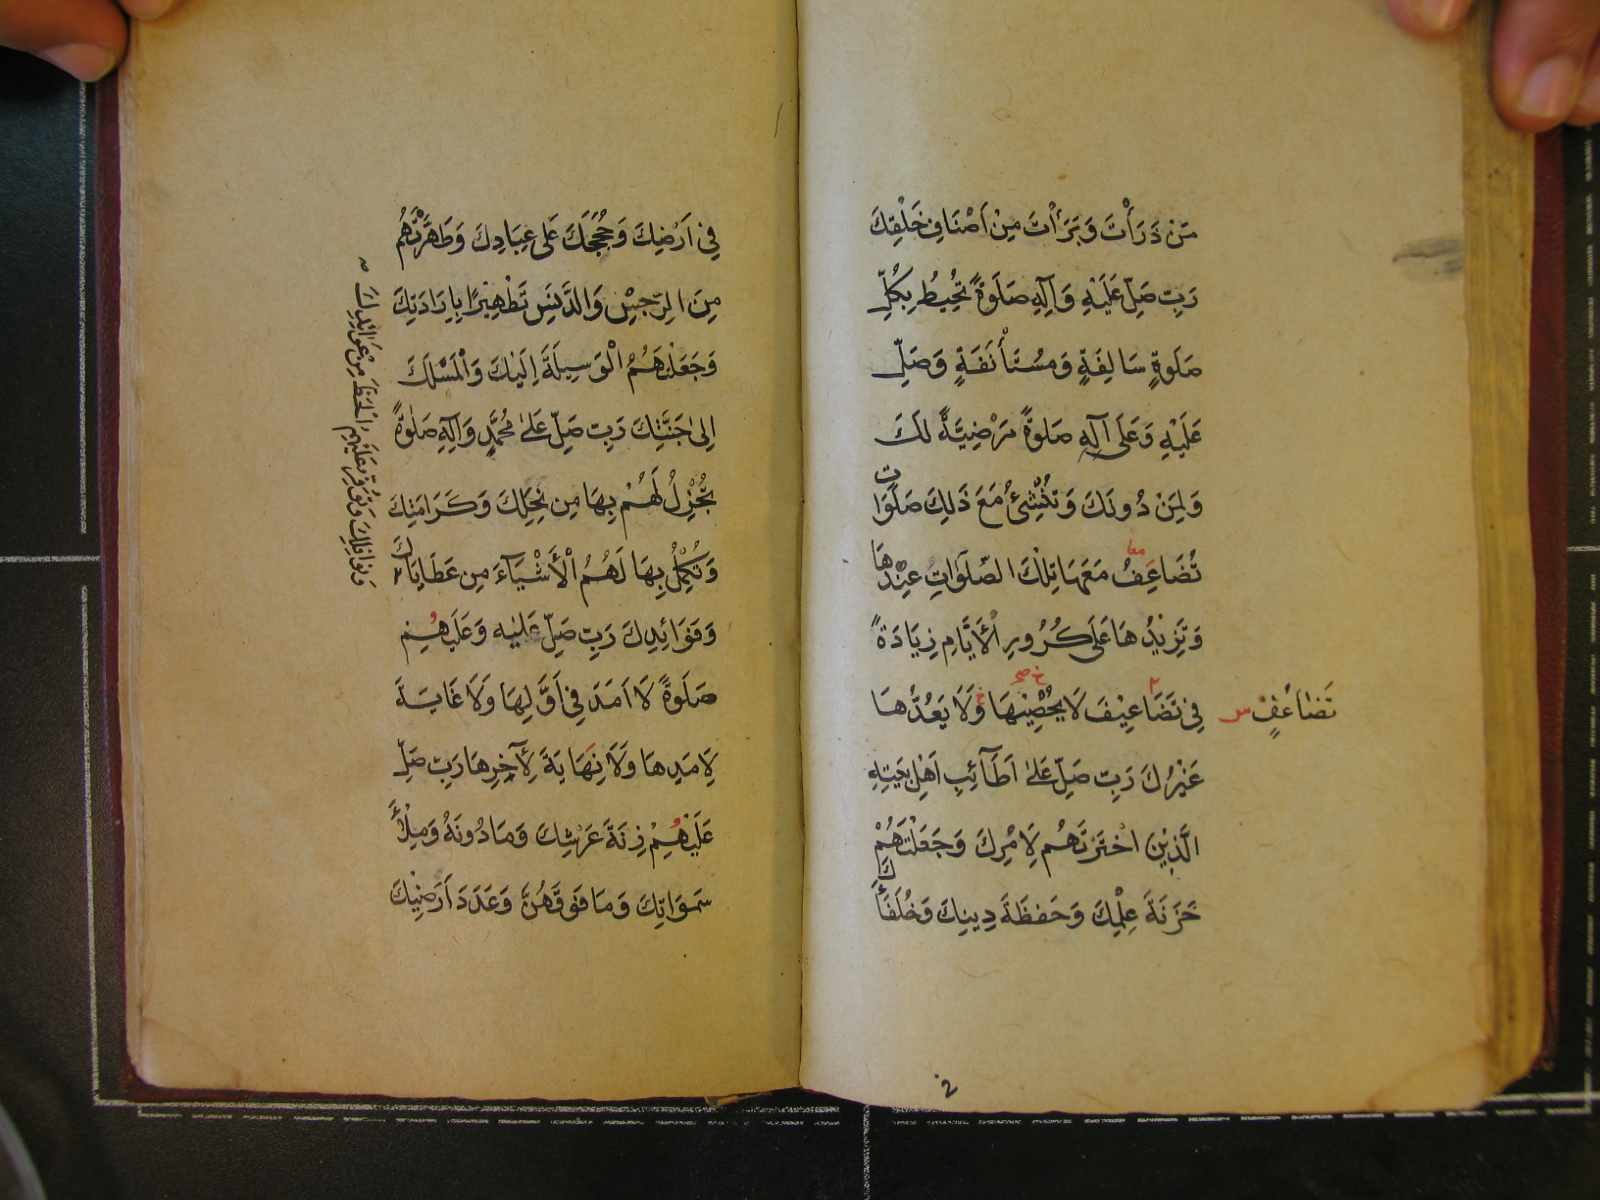 مَن ذَرَأْتَ وَبَرَأْتَ مِنْ اَصْنَافِ خَلْقِكَ
رَبِّ صَلِّ عَلَيْهِ وَاٰلِهِ صَلٰوةً تُحِيطُ بِكُلِّ
صَلٰوةٍ سَالِفَةٍ وَمُسْتَأْنَفَةٍ وَصَلِّ
عَلَيْهِ وَعَلَى آلِهِ صَلٰوةً مَرْضِيَّةً لَكَ
وَلِمَنْ دُونَكَ وَتُنْشِئُ مَعَ ذَلِكَ صَلَوَاتٍ
تُضَاعِفُ مَعَهَا تِلْكَ الصَّلَوَاتِ عِنْدَهَا
معا
وَتَزِيْدُهَا عَلَى كُرُورِ الْأَيَّامِ زِيَادَةً
فِي تَضَاعِيْفَ لَا يُحْصِيْهَا وَلَا يَعُدُّهَا
خ صح
تَضَاعُفٍ س
غَيْرُكَ رَبِّ صَلِّ عَلَىٰ اَطَآئِبِ اَهْلِ بَيْتِهِ
الَّذِيْنَ اخْتَرْتَهُمْ لِاَمْرِكَ وَجَعَلْتَهُمْ
خَزَنَةَ عِلْمِكَ وَحَفَظَةَ دِينِكَ وَخُلَفَآءَكَ
فِي اَرْضِكَ وَحُجَجَكَ عَلَى عِبَادِكَ وَطَهَّرْتَهُمْ
مِنَ الرِّجْسِ وَالدَّنَسِ تَطْهِيْرًا بِاِرَادَتِكَ
وَجَعَلْتَهُمُ الْوَسِيلَةَ اِلَيْكَ وَالْمَسْلَكَ
اِلىٰ جَنَّتِكَ رَبِّ صَلِّ عَلىٰ مُحَمَّدٍ وَاٰلِهِ صَلٰوةً
تُجْزِلُ لَهُمْ بِهَا مِن نِحَلِكَ وَكَرَامَتِكَ
وَتُكْمِلُ بِهَا لَهُمُ الْأَشْيَآءَ مِن عَطَايَاكَ
وَنَوَافِلِكَ وَتُوَفِّرُ عَلَيْهِمُ الْحَظَّ مِنْ عَوَائِدِكَ
وَفَوَائِدِكَ رَبِّ صَلِّ عَلَيْهِ وَعَلَيْهِمْ
صَلٰوةً لَا اَمَدَ فِي اَوَّلِهَا وَلَا غَايَةَ
لِاَمَدِهَا وَلَا نِهَايَةَ لِآخِرِهَا رَبِّ صَلِّ
عَلَيْهِمْ زِنَةَ عَرْشِكَ وَمَا دُونَهُ وَمِلْأَ
سَمَوَاتِكَ وَمَا فَوْقَهُنَّ وَعَدَدَ اَرَضِيْكَ